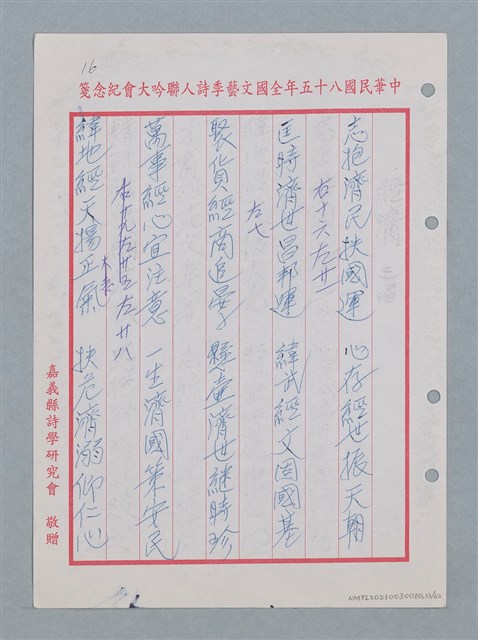 16
中華民國八十五年全國文藝季詩人聯吟大會紀念箋
志抱濟民扶國運 心存經世振天朝
右十六左廿一
匡時濟世昌邦運 緯武經文固國基
左七
聚貨經商追晏子 懸壺濟世継時珍
萬事經心宜注意 一生濟國策安民
右廿九左廿五左廿八
緯地經天揚正氣 扶危濟溺仰仁心
嘉義縣詩學研究會 敬贈